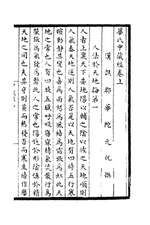 華氏中藏經卷上
漢譙郡華佗元化撰
人法於天地論第一
人者上稟天下委地陽以輔之陰以佐之天地順則
人氣泰天地逆則人氣否是以天地有四時五行寒
暄動靜其變也喜為雨怒為風結為霜張為虹此天
地之常也人有四肢五臟呼吸寤寐精氣流散行為
榮張為氣發為聲此人之常也陽施於形陰慎於精
天地之同也失其守則蒸而熱發否而寒生結作